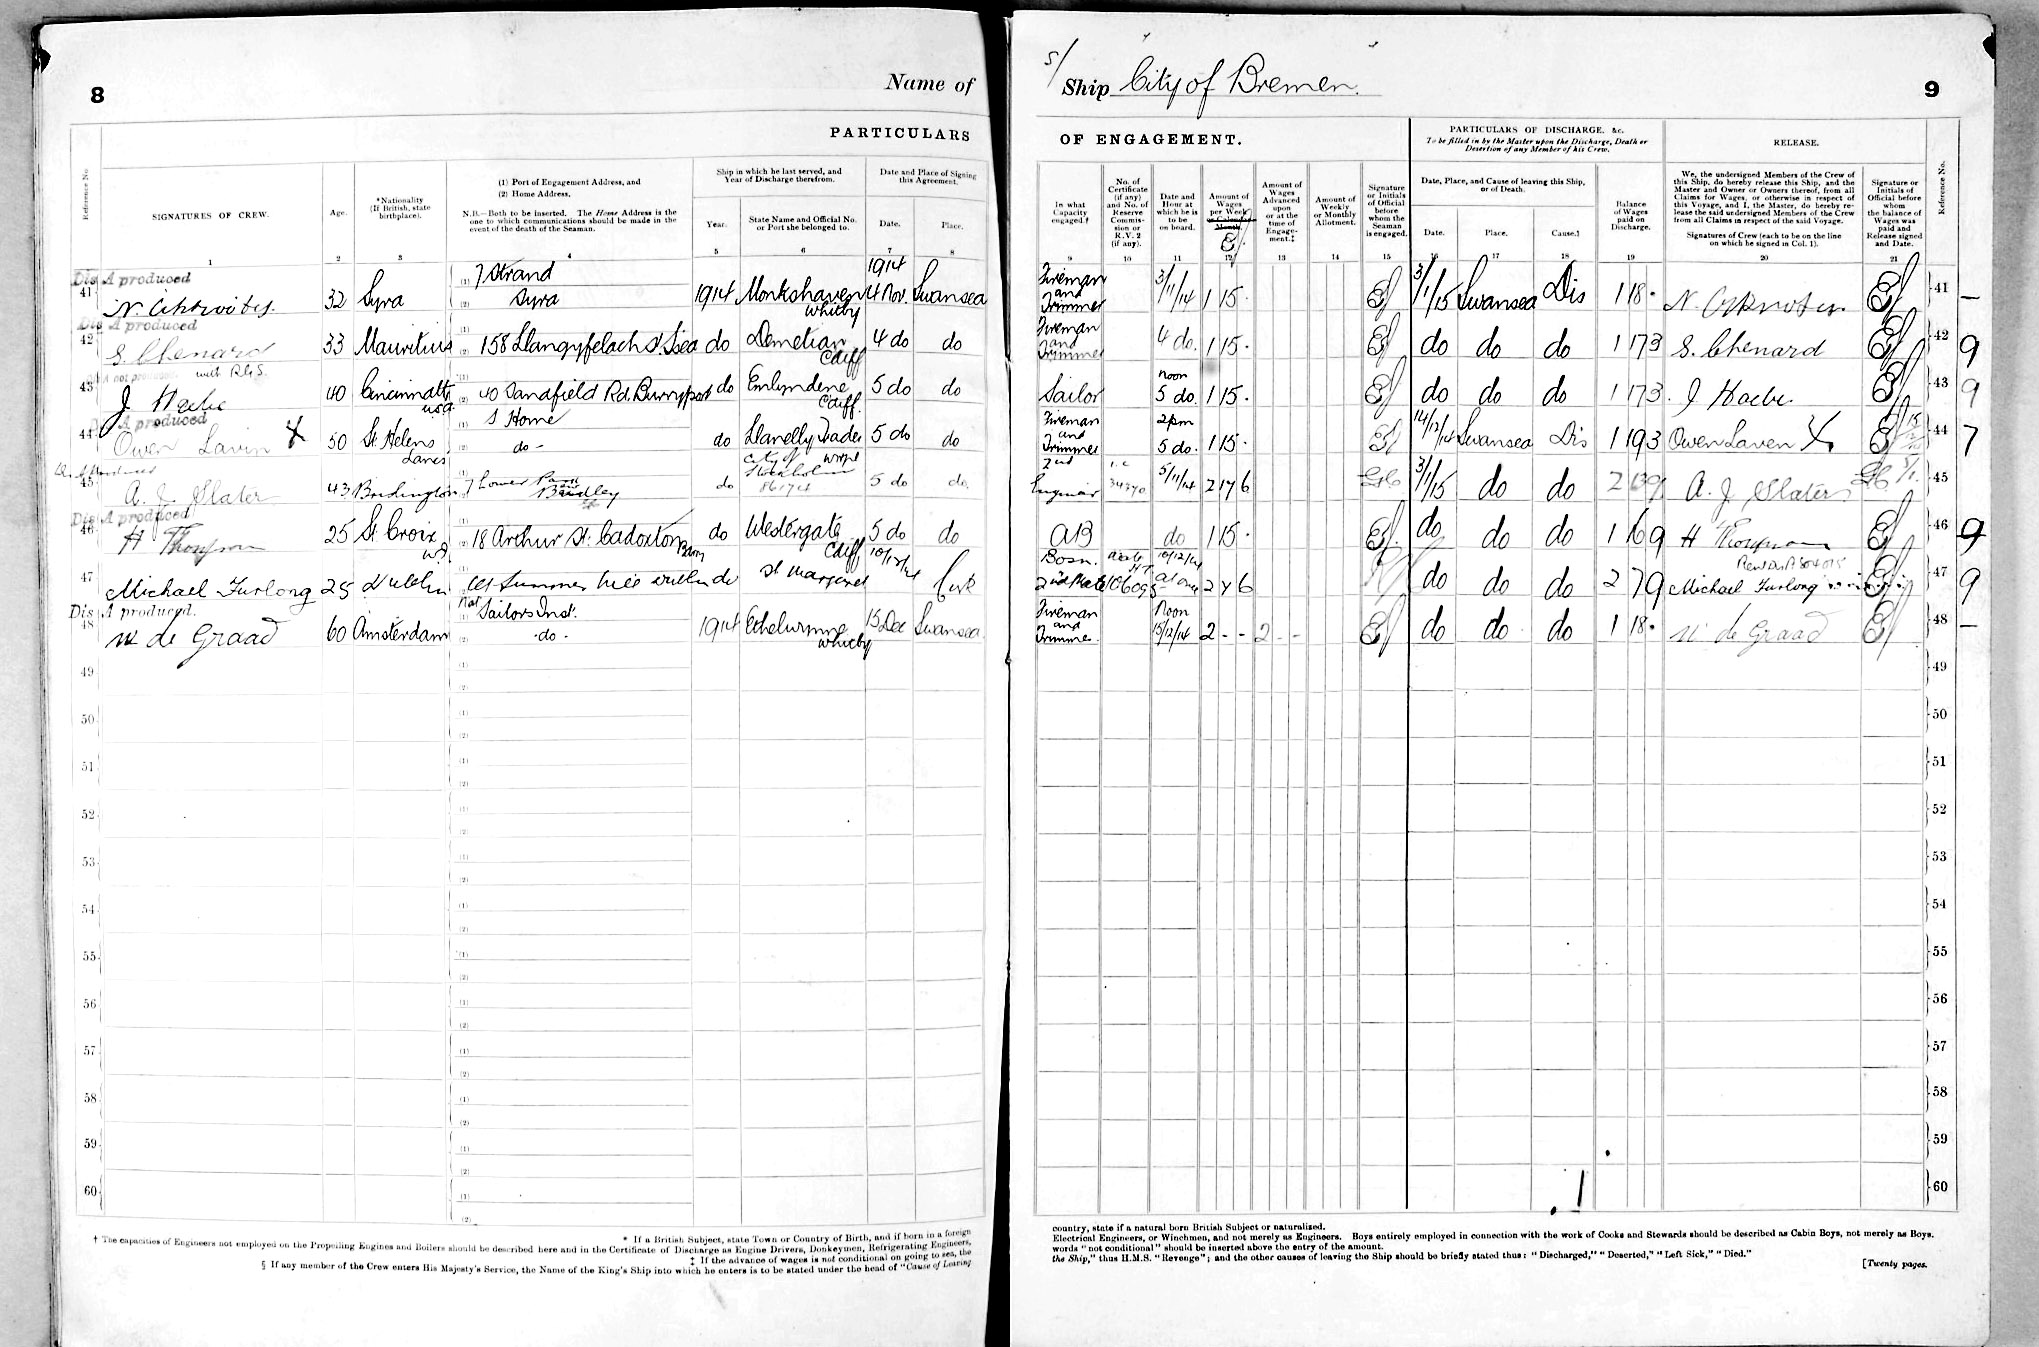 8
Name of
PARTICULARS
Reference No.
SIGNATURES OF CREW.
Age.
*Nationality
(If British, state
birthplace).
(1) Port of Engagement Address, and
(2) Home Address.
N.B.—Both to be inserted. The Home Address is the
one to which communications should be made in the
event of the death of the Seaman.
Ship in which he last served, and
Year of Discharge therefrom.
Year.
State Name and Official No.
or Port she belonged to.
Date and Place of Signing
this Agreement.
Date.
Place.
1 2 3 4 5 6 7 8
Dis A produced
41 32 Syra 7 Strand Syra 1914 Monkshaven Whitby 1914 4 Nov. Swansea
Dis A produced
42 S. Chenard 33 Mauritius 158 Llangyfelach St S'sea do Demetian Cdiff 4 do do
A not produced with R.G.S.
43 J Haebe 40 Cincinnatti USA 40 Sandfield Rd. Burryport do Emlyndene Cdiff. 5 do do
A produced
44 Owen Lavin X 50 St Helens Lancs S Home do - do Llanelly Trader 5 do do
45 A. J. Slater 43 Bridlington 7 Lower Park Bradley do City of Stockholm 5 do do.
Dis A produced
46 H Thompson 25 St Croix W.I. 18 Arthur St. Cadoxton Barry do Westergate Cdiff 5 do do
47 Michael Furlong 25 Dublin Summer Hill Dublin do St Margaret 10/12/14 Cork
Dis A produced.
48 W de Graad 60 Amsterdam Nat Sailors Inst. - do - 1914 Ethelwynne Whitby 15 Dec Swansea.
49
50
51
52
53
54
55
56
57
58
59
60
* If a British Subject, state Town or Country of Birth, and if born in a foreign
† The capacities of Engineers not employed on the Propelling Engines and Boilers should be described here and in the Certificate of Discharge as Engine Drivers, Donkeymen, Refrigerating Engineers,
‡ If the advance of wages is not conditional on going to sea, the
§ If any member of the Crew enters His Majesty's Service, the Name of the King's Ship into which he enters is to be stated under the head of "Cause of Leaving
S/
Ship City of Bremen.
9
OF ENGAGEMENT.
PARTICULARS OF DISCHARGE, &c.
To be filled in by the Master upon the Discharge, Death or
Desertion of any Member of his Crew.
RELEASE.
In what
Capacity
engaged.†
No. of
Certificate
(if any)
and No. of
Reserve
Commis-
sion or
R.V. 2
(if any).
Date and
Hour at
which he is
to be
on board.
Amount of
Wages
per Week
or Calendar
Month.
Amount of
Wages
Advanced
upon
or at the
time of
Engage-
ment.‡
Amount of
Weekly
or Monthly
Allotment.
Signature
or Initials
of Official
before
whom the
Seaman
is engaged.
Date, Place, and Cause of leaving this Ship,
or of Death.
Date.
Place.
Cause.§
Balance
of Wages
paid on
Discharge.
We, the undersigned Members of the Crew of
this Ship, do hereby release this Ship, and the
Master and Owner or Owners thereof, from all
Claims for Wages, or otherwise in respect of
this Voyage, and I, the Master, do hereby re-
lease the said undersigned Members of the Crew
from all Claims in respect of the said Voyage.
Signatures of Crew (each to be on the line
on which he signed in Col. 1).
Signature or
Initials of
Official before
whom
the balance of
Wages was
paid and
Release signed
and Date.
Reference No.
9 10 11 12 13 14 15 16 17 18 19 20 21
Fireman and Trimmer 3/11/14 1 15 · 3/1/15 Swansea Dis 1 18 · 41 —
Fireman and Trimmer 4 do. 1 15 · do do do 1 17 3 S. Chenard 42 9
Sailor noon 5 do. 1 15 · do do do 1 17 3 J Haebe. 43 9
Fireman and Trimmer 2pm 5 do. 1 15 · 14/12/14 Swansea Dis 1 19 3 Owen Laven X 44 7
2nd Engineer 5/11/14 2 17 6 3/1/15 do do 2 A. J. Slater 45
AB do 1 15 · do do do 1 16 9 H Thompson 46 9
Bosn. 2nd Mate 10/12/14 at once 2 7 6 do do do 2 7 9 Michael Furlong 47 9
Fireman and Trimmer. Noon 15/12/14 2 - - 2 - - do do do 1 18 · W de Graad 48 —
49
50
51
52
53
54
55
56
57
58
59
60
country, state if a natural born British Subject or naturalized.
Electrical Engineers, or Winchmen, and not merely as Engineers. Boys entirely employed in connection with the work of Cooks and Stewards should be described as Cabin Boys, not merely as Boys.
words "not conditional" should be inserted above the entry of the amount.
the Ship," thus H.M.S. "Revenge"; and the other causes of leaving the Ship should be briefly stated thus: "Discharged," "Deserted," "Left Sick," "Died."
[Twenty pages.